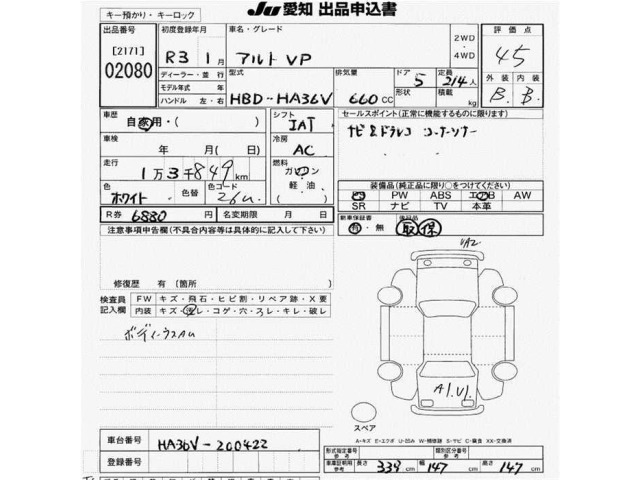 キー預かり・キーロック
JU 愛知 出品申込書
出品番号
[2171]
02080
初度登録年月
R3 1月
ディーラー・並行
モデル年式 年
ハンドル 左・右
車名・グレード
アルト VP
2WD
4WD
型式
HBD-HA36V
排気量
660 CC
ドア 5
形状
定員 2/4人
積載 kg
評価点
4.5
外装 内装
B B
車歴
自家用・( )
車検
年 月( 日)
走行
1万3千849km
色
ホワイト
色コード
26U
シフト
IAT
冷房
AC
燃料
ガソリン
軽油
( )
セールスポイント(正常に機能するものに限ります)
ナビ&ドラレコ コーナーソナー
装備品(純正品に限り○をつけてください)
PS PW ABS エアB AW
SR ナビ TV 本革
R券 6830円
名変期限 月 日
新車保証書
有・無
保証品
取 保
注意事項申告欄(不具合内容等は具体的に記入して下さい)
修復歴 有(箇所 )
検査員
記入欄
FW キズ・飛石・ヒビ割・リペア跡・X要
内装 キズ・汚レ・コゲ・穴・スレ・キレ・破レ
ボディーウスAU
UA2
A1.U1
スペア
A-キズ E-エクボ U-凹み W-補修跡 S-サビ C-腐食 XX-交換済
車台番号
HA36V-200422
登録番号
形式指定番号
参考
類別区分番号
参考
車庫証明用
参考
長さ 339 cm
幅 147 cm
高さ 147 cm